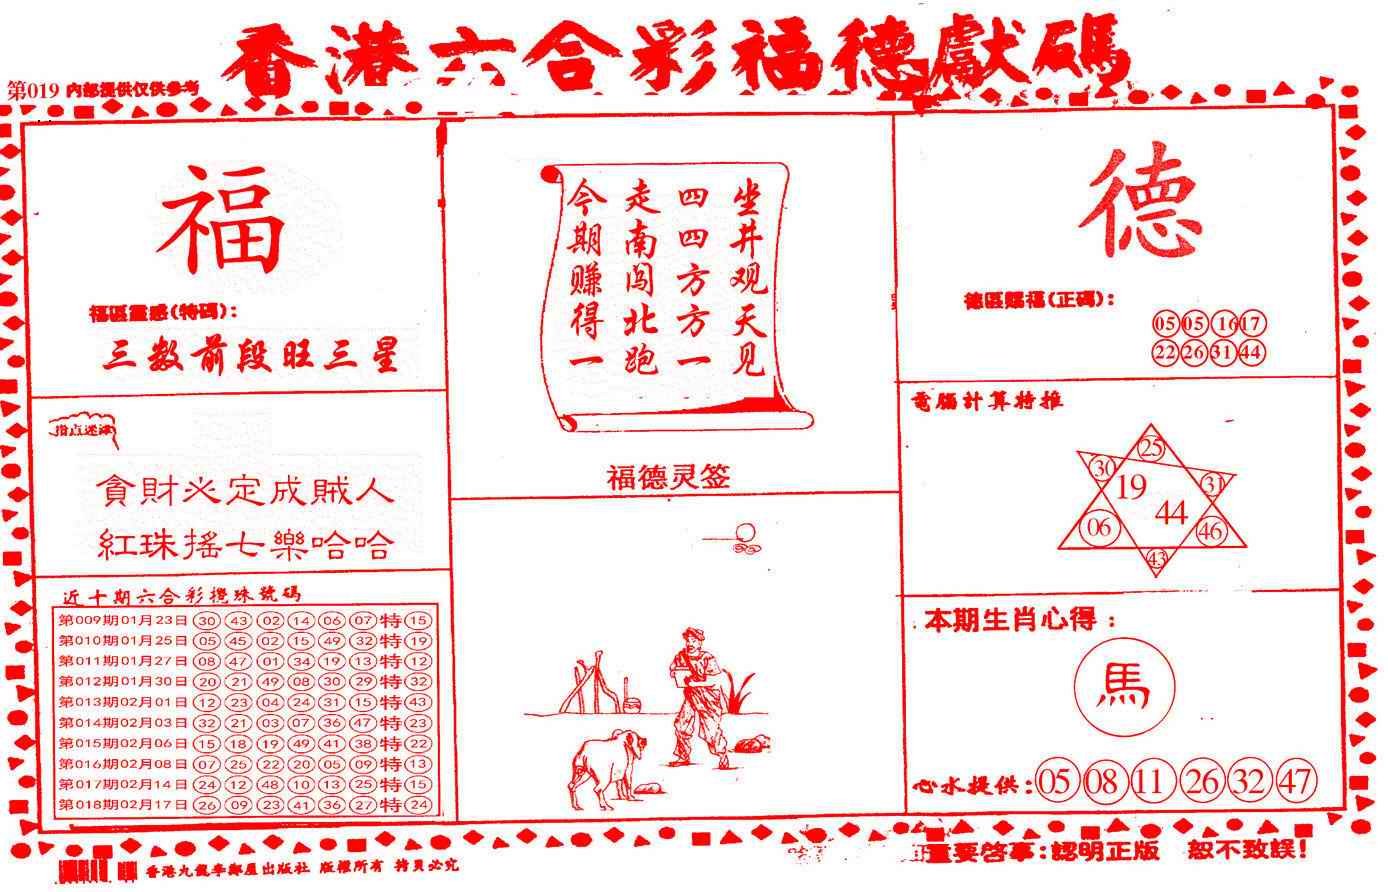 香港六合彩福德獻碼
第019 內部提供仅供参考
福
福區靈感(特碼):
三数前段旺三星
指点迷津
貪財必定成賊人
紅珠搖七樂哈哈
近十期六合彩攪珠號碼
第009期01月23日 30 43 02 14 06 07 特 15
第010期01月25日 05 45 02 15 49 32 特 19
第011期01月27日 08 47 01 34 19 13 特 12
第012期01月30日 20 21 49 08 30 29 特 32
第013期02月01日 12 23 04 24 31 15 特 43
第014期02月03日 32 21 03 07 36 47 特 23
第015期02月06日 15 18 19 49 41 38 特 22
第016期02月08日 07 25 22 20 05 09 特 13
第017期02月14日 24 12 48 10 13 25 特 15
第018期02月17日 26 09 23 41 36 27 特 24
坐井观天见
四四方方一
走南闯北跑
今期赚得一
福德灵签
德
德區賜福(正碼):
05 05 16 17
22 26 31 44
電腦計算特推
25
30 31
19
44
06 46
43
本期生肖心得:
馬
心水提供: 05 08 11 26 32 47
香港九龍李鄭屋出版社 版權所有 拷貝必究
重要啓事:認明正版 恕不致誤!